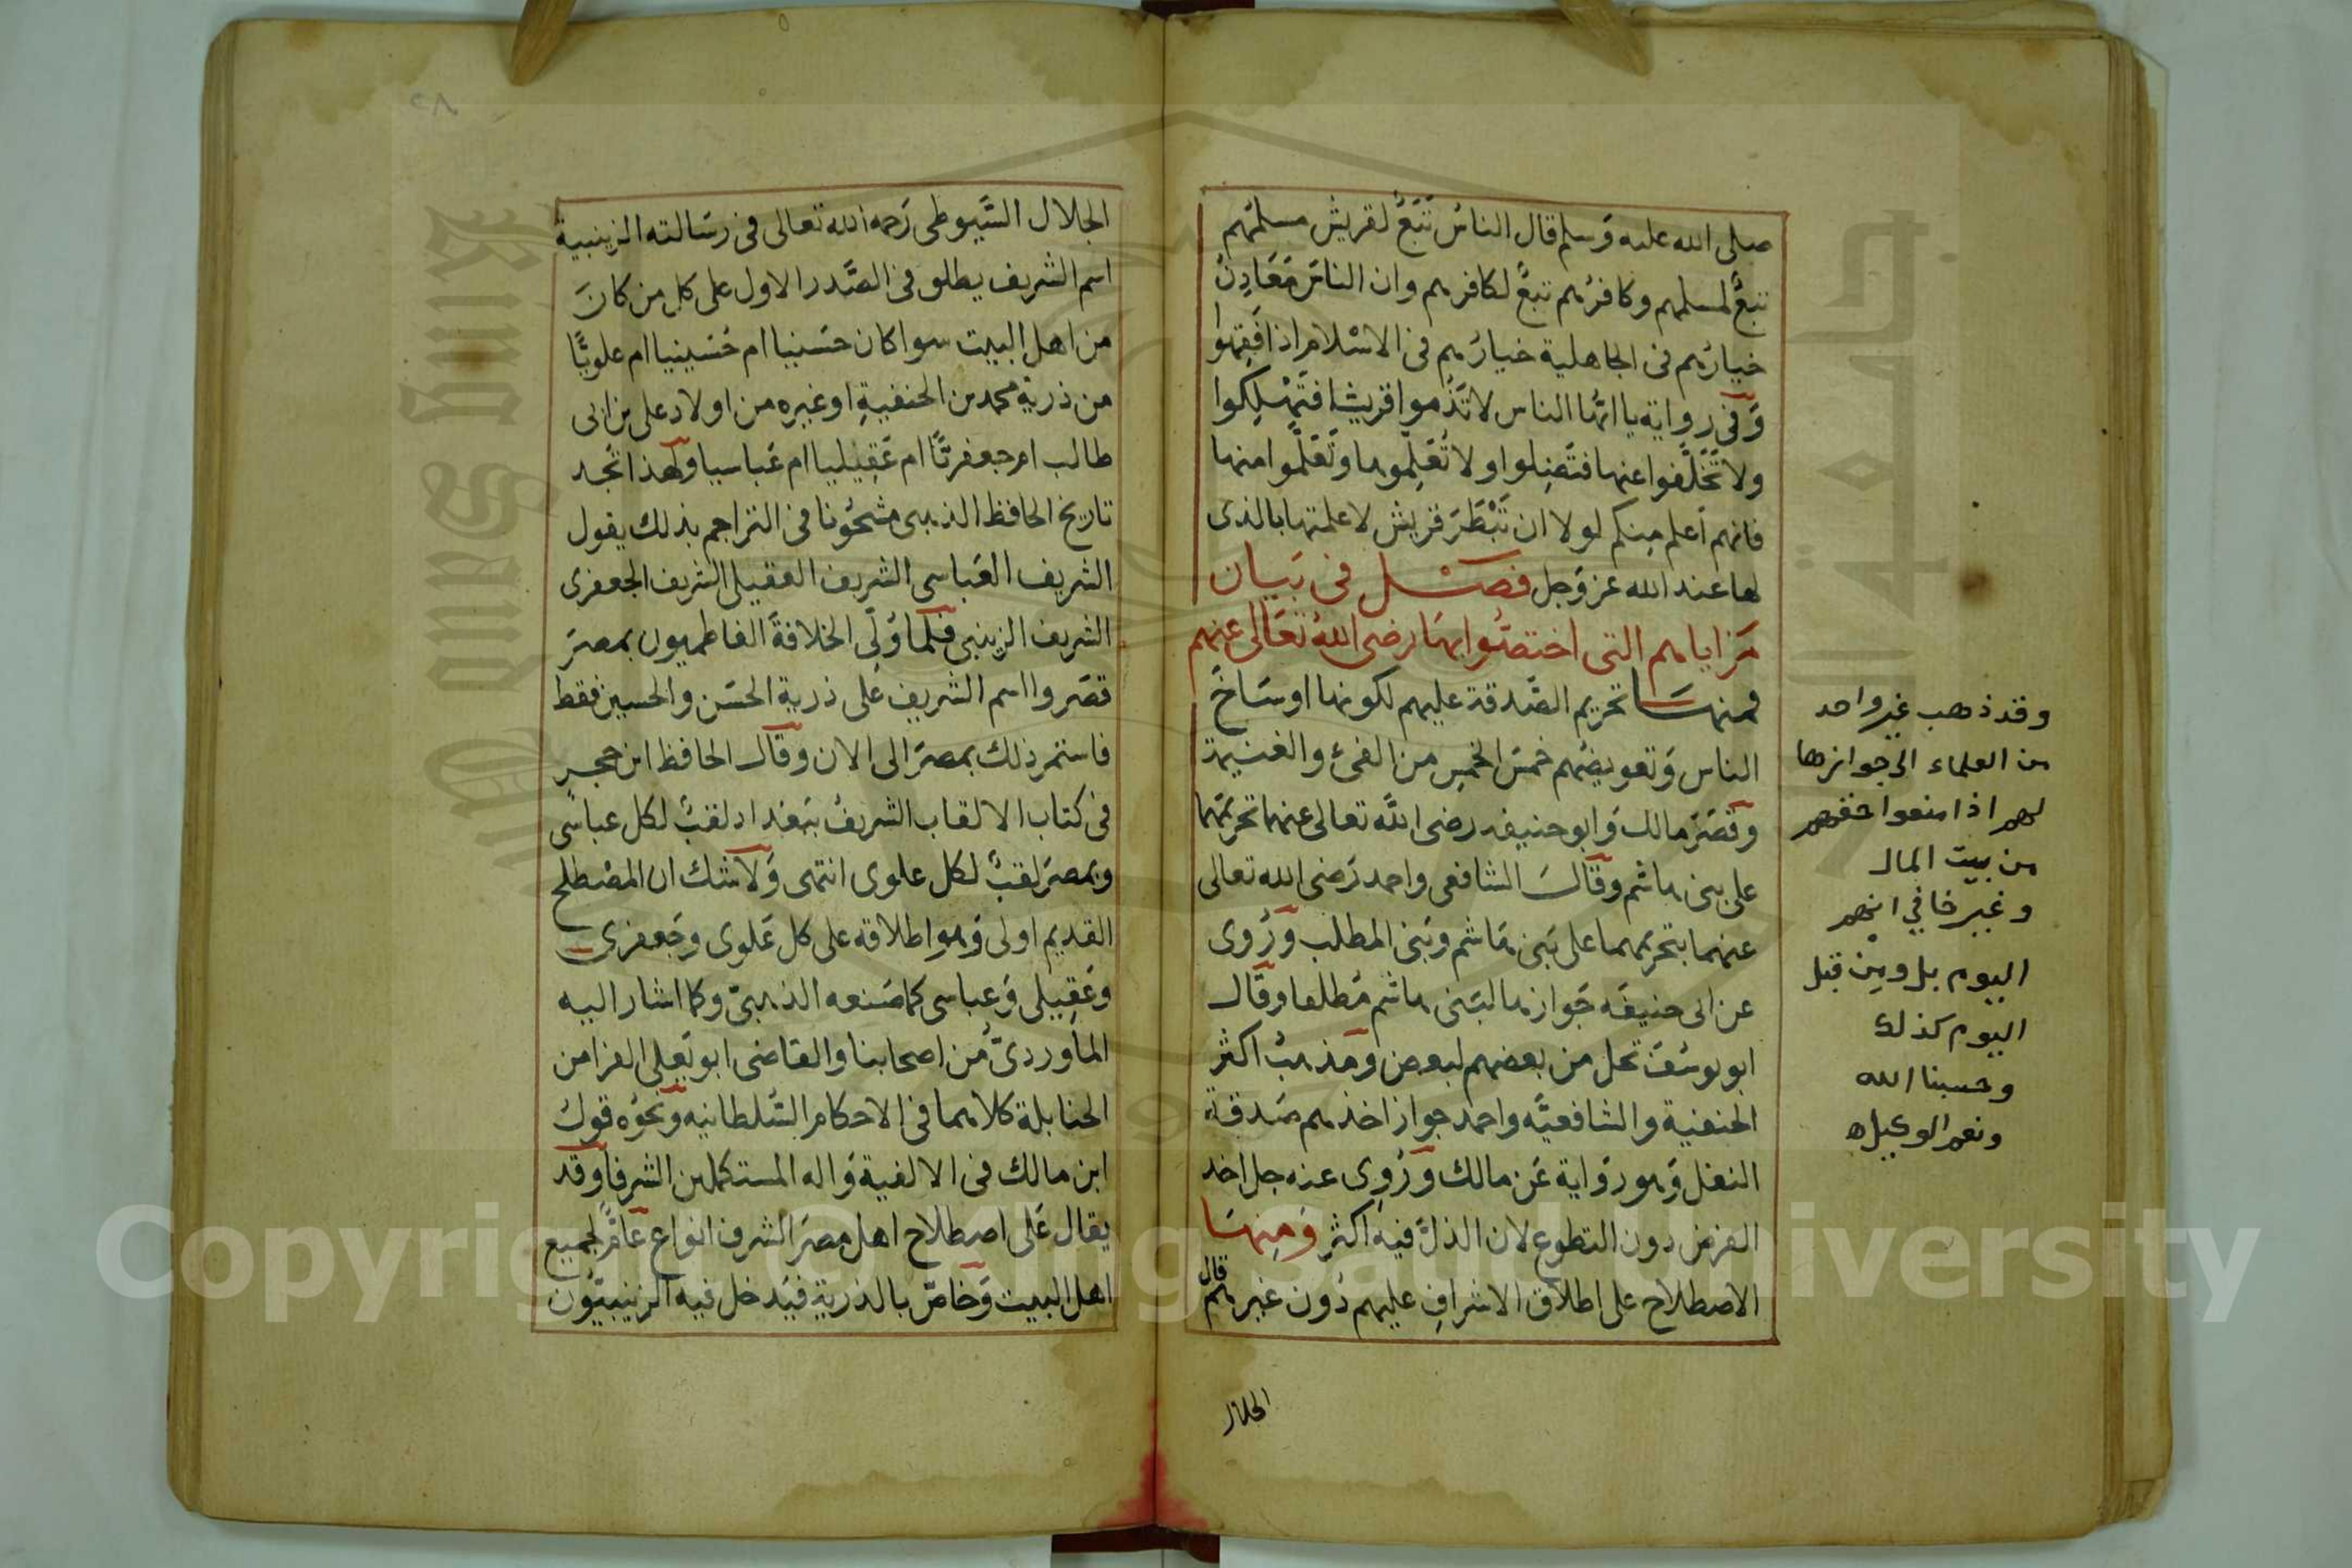 صلى الله عليه وَسلم قال الناسُ تَبَعٌ لقريشٍ مسلمُهم
تبعٌ لمسلمهم وكافرُهم تبعٌ لكافرهم وان الناسَ مَعَادِنُ
خيارُهم فى الجاهلية خيارُهم فى الاسْلام اذا فَقِهُوا
وَفى رواية يا ايّها الناس لا تَذُموا قريشا فَتَهْلِكوا
ولا تَخَلَّفوا عنها فتَضِلوا ولا تُعَلِّموها وَتَعَلَّموا منها
فانهم اَعلم مِنكم لولا ان تَبْطَرَ قريش لاعلمتها بالذى
لها عند الله عز وَجل فصَــل فى بَيَان
مَزاياهم التى اختصّوا بهَا رضى اللهُ تعَالى عنهم
فمنهــا تحريم الصَّدقة عليهم لكونها اوسَاخَ
الناس وَتعويضُهم خمسَ الخمسِ من الفئ والغنيمة
وقَصَرَ مالك وَابو حنيفه رضى الله تعالى عنهما تحريمَها
على بنى هاشم وقالَ الشافعى واحمد رَضى الله تعالى
عنهما بتحريمهما على بَنى هَاشم وَبَنى المطلب وَرُوى
عن ابى حنيفَه جَوازها لبَنى هاشم مُطلقا وقال
ابو يوسُفَ تحل من بعضهم لبعض ومَذهبُ اكثر
الحنفية والشافعيَّه واحمد جواز اخذهم صَدقة
النفل وَهو رَواية عَن مالك وَرُوى عنه حل اخذ
الفرض دون التطوع لان الذلَّ فيه اكثر وَمِنهَا
الاصطلاح على اطلاق الاشرافِ عليهم دُون غيرهم قال
الجلال
وقد ذهب غير واحد
من العلماء الى جوازها
لهم اذا منعوا حقهم
من بيت المال
وغير خافي انهم
اليوم بل ومِن قبل
اليوم كذلك
وحسبنا الله
ونعم الوكيل ه
٢٨
الجلال السّيوطى رَحمه الله تعالى فى رسَالته الزينبية
اسم الشريف يطلق فى الصَّدر الاول على كل من كانَ
من اهل البيت سوا كان حسَنيا ام حُسَينيا ام علويًّا
من ذرية محمد بن الحنفيةِ او غيره من اولاد على بن ابى
طالب ام جعفريًّا ام عَقِيليا ام عَباسيا ولهذا تجد
تاريخ الحافظ الذهبى مشحُونا فى التراجم بذلك يقول
الشريف العَباسى الشريف العقيلى الشريف الجعفرى
الشريف الزينبى فلما وُلّى الخلافةَ الفاطميون بمصرَ
قصَروا اسم الشريف عَلى ذرية الحسَن والحسين فقط
فاستمر ذلك بمصرَ الى الان وقال الحافظ ابن حجر
فى كتاب الالقاب الشريفُ ببَغداد لقبٌ لكل عباسى
وبمصرَ لقبٌ لكل علوى انتهى وَلا شك ان المصْطلح
القديم اولى وَهو اطلاقه على كل عَلوى وجَعفرى
وعَقِيلى وَعباسى كما صَنعه الذهبىّ وكما اشار اليه
الماوردىّ من اصحابنا والقاضى ابو يَعلى الفرا من
الحنابلة كلاهما فى الاحكام السُّلطانيه وَنحوُه قولُ
ابن مالك فى الالفية وَاله المستكملين الشرفا وقد
يقال عَلى اصطلاح اهل مصرَ الشرف انواع عامٌّ لجميع
اهل البيت وَخاصّ بالذرية فيَدخل فيه الزينبيّون
Copyright © King Saud University
King Saud University
جامعة الملك سعود